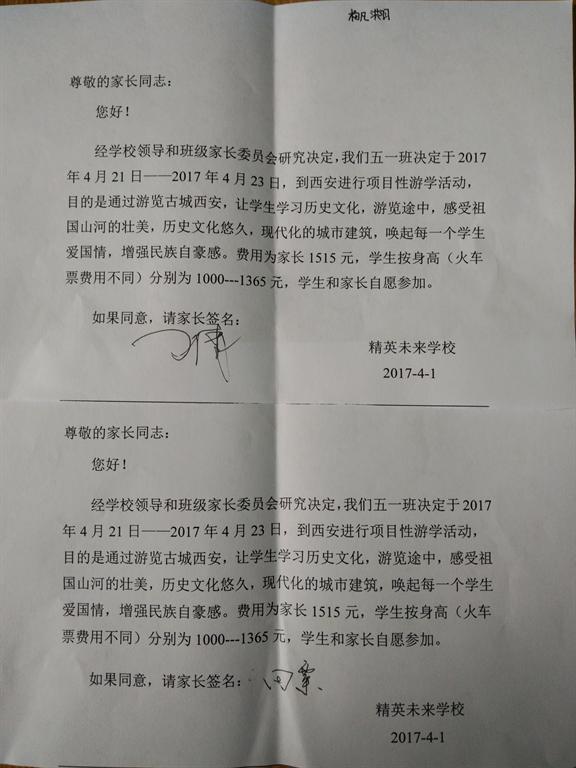 尊敬的家长同志：
您好！
经学校领导和班级家长委员会研究决定，我们五一班决定于 2017
年 4 月 21 日——2017 年 4 月 23 日，到西安进行项目性游学活动，
目的是通过游览古城西安，让学生学习历史文化，游览途中，感受祖
国山河的壮美，历史文化悠久，现代化的城市建筑，唤起每一个学生
爱国情，增强民族自豪感。费用为家长 1515 元，学生按身高（火车
票费用不同）分别为 1000---1365 元，学生和家长自愿参加。
如果同意，请家长签名：
精英未来学校
2017-4-1
尊敬的家长同志：
您好！
经学校领导和班级家长委员会研究决定，我们五一班决定于 2017
年 4 月 21 日——2017 年 4 月 23 日，到西安进行项目性游学活动，
目的是通过游览古城西安，让学生学习历史文化，游览途中，感受祖
国山河的壮美，历史文化悠久，现代化的城市建筑，唤起每一个学生
爱国情，增强民族自豪感。费用为家长 1515 元，学生按身高（火车
票费用不同）分别为 1000---1365 元，学生和家长自愿参加。
如果同意，请家长签名：
精英未来学校
2017-4-1